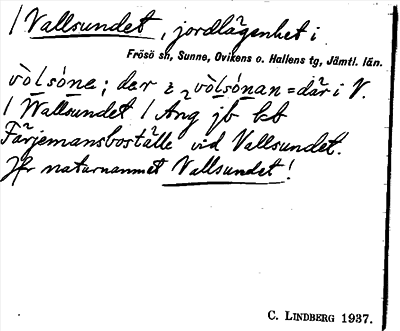 / Vallsundet, jordlägenhet i
Frösö sn, Sunne, Ovikens o. Hallens tg, Jämtl. län.
vòlsóne; där i vòlsónan = där i V.
/ Wallsundet / Ång jb kb
Färjemansboställe vid Vallsundet.
Jfr naturnamnet Vallsundet!
C. LINDBERG 1937.